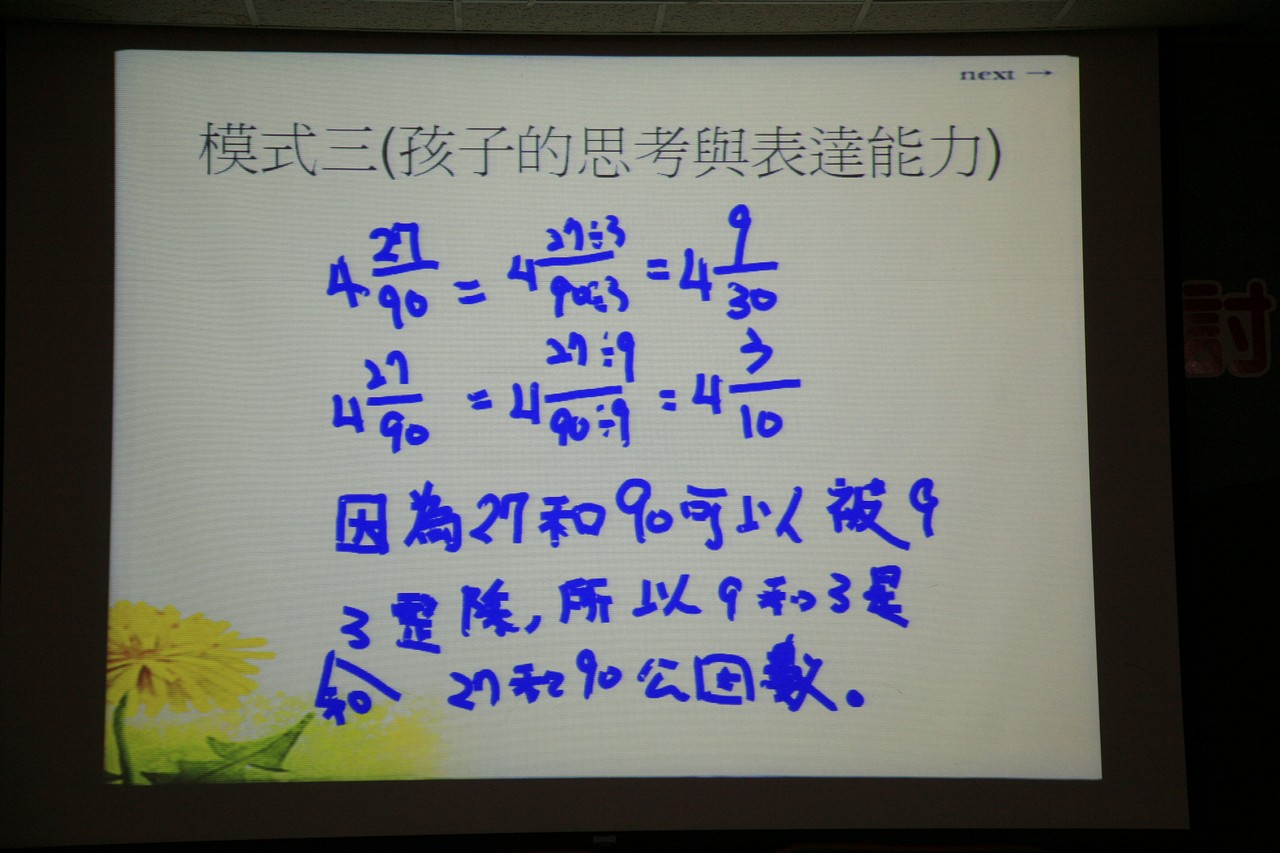 next →
模式三(孩子的思考與表達能力)
4 27/90 = 4 27÷3/90÷3 = 4 9/30
4 27/90 = 4 27÷9/90÷9 = 4 3/10
因為27和90可以被9
和
3整除,所以9和3是
27和90公因數。
討